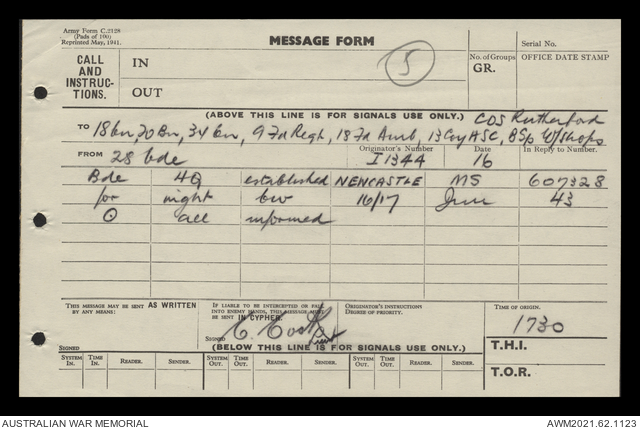 Army Form C.2128
(Pads of 100)
Reprinted May, 1941.
MESSAGE FORM
Serial No.
CALL AND INSTRUC- TIONS.
IN
OUT
5
No. of Groups
GR.
OFFICE DATE STAMP
(ABOVE THIS LINE IS FOR SIGNALS USE ONLY.)
COS Rutherford
TO 18 bn, 20 Bn, 34 bn, 9 Fd Regt, 18 Fd Amb, 13 Coy ASC, B Sp W/shops
FROM 28 bde
Originator's Number I 1344
Date 16
In Reply to Number.
Bde HQ established NEWCASTLE MS 607328
for night 16/17 June 43
O all informed
THIS MESSAGE MAY BE SENT AS WRITTEN BY ANY MEANS:
SIGNED
IF LIABLE TO BE INTERCEPTED OR FALL INTO ENEMY HANDS, THIS MESSAGE MUST BE SENT IN CYPHER.
SIGNED
ORIGINATOR'S INSTRUCTIONS
DEGREE OF PRIORITY.
TIME OF ORIGIN.
1730
T.H.I.
T.O.R.
(BELOW THIS LINE IS FOR SIGNALS USE ONLY.)
SYSTEM IN. TIME IN. READER. SENDER. SYSTEM OUT. TIME OUT. READER. SENDER. SYSTEM OUT. TIME OUT. READER. SENDER.
AUSTRALIAN WAR MEMORIAL
AWM2021.62.1123